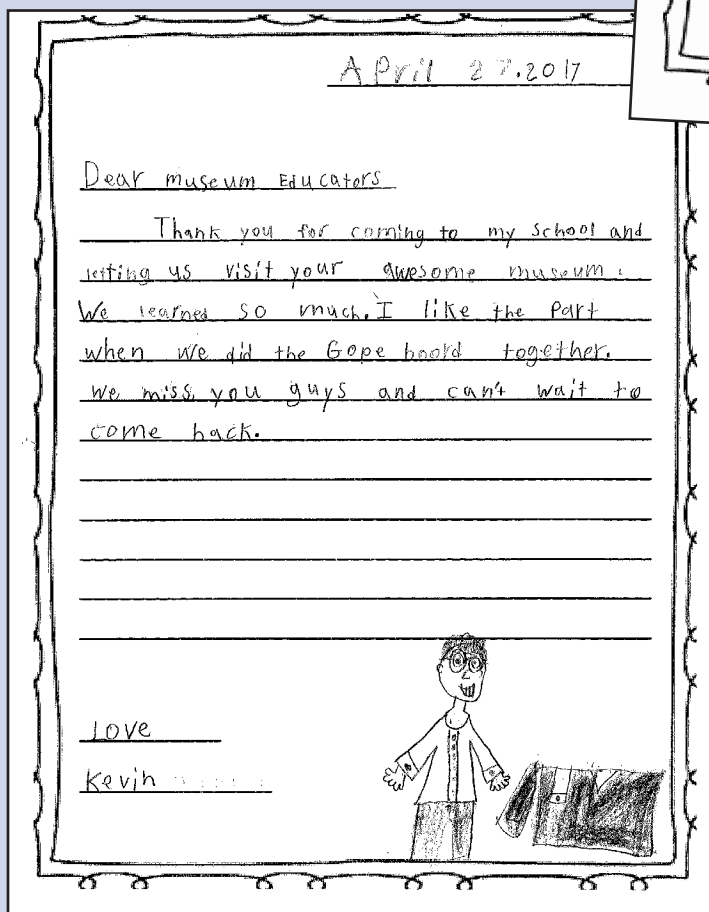 April 27.2017
Dear museum Educators
Thank you for coming to my school and
letting us visit your awesome museum.
We learned so much. I like the Part
when we did the Gope board together.
We miss you guys and can't wait to
come back.
Love
Kevin